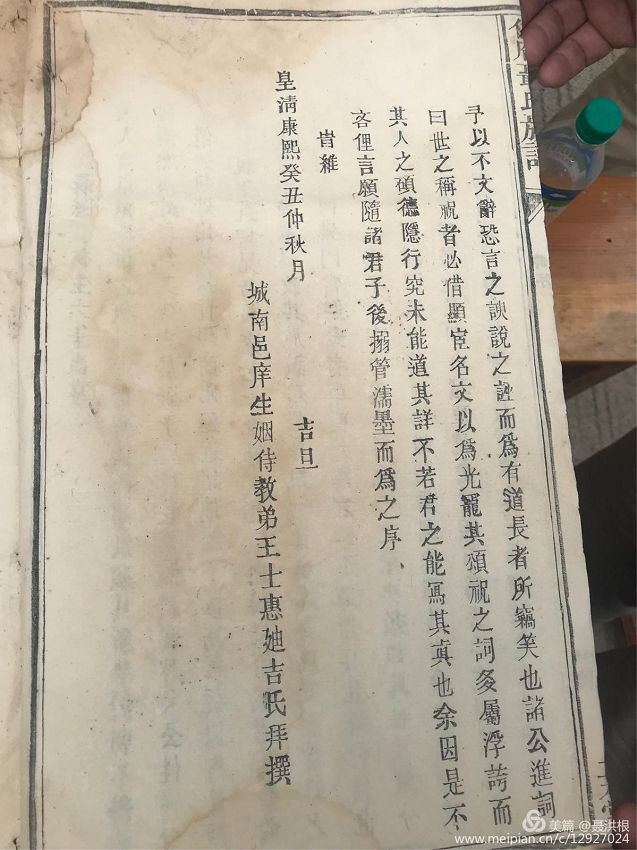 予以不文辭恐言之諛說之誣而爲有道長者所竊笑也諸公進詞
曰世之稱祝者必借顯宦名文以爲光寵其頌祝之詞多屬浮誇而
其人之碩德隱行究未能道其詳不若君之能寫其眞也余因是不
吝俚言願隨諸君子後搦管濡墨而爲之序、
旹維
皇淸康熙癸丑仲秋月
吉旦
城南邑庠生姻侍教弟王士惠廸吉氏拜撰
氏族譜
美篇 @聂洪根
www.meipian.cn/c/12927024